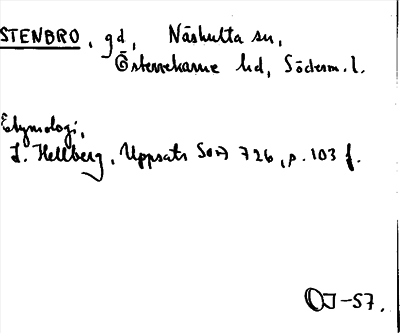 STENBRO, gd, Näshulta sn,
Österrekarne hd, Söderm. l.
Etymologi,
L. Hellberg, Uppsats Sov 726, p. 103 f.
OJ-57.